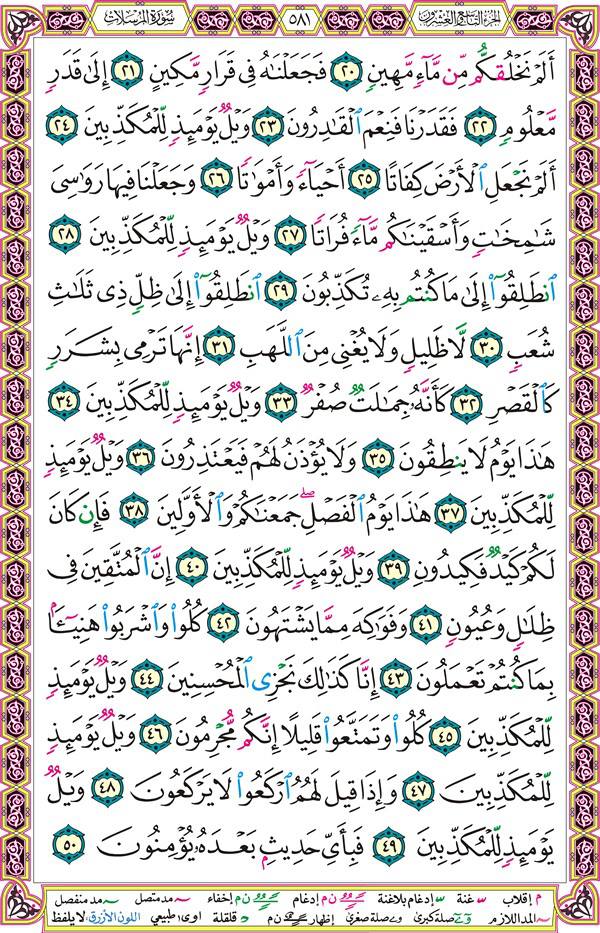 الجزء التاسع والعشرون ٥٨١ سورة المرسلات
أَلَمْ نَخْلُقكُّم مِّن مَّآءٍ مَّهِينٍ ٢٠ فَجَعَلْنَٰهُ فِى قَرَارٍ مَّكِينٍ ٢١ إِلَىٰ قَدَرٍ
مَّعْلُومٍ ٢٢ فَقَدَرْنَا فَنِعْمَ ٱلْقَٰدِرُونَ ٢٣ وَيْلٌ يَوْمَئِذٍ لِّلْمُكَذِّبِينَ ٢٤
أَلَمْ نَجْعَلِ ٱلْأَرْضَ كِفَاتًا ٢٥ أَحْيَآءً وَأَمْوَٰتًا ٢٦ وَجَعَلْنَا فِيهَا رَوَٰسِىَ
شَٰمِخَٰتٍ وَأَسْقَيْنَٰكُم مَّآءً فُرَاتًا ٢٧ وَيْلٌ يَوْمَئِذٍ لِّلْمُكَذِّبِينَ ٢٨
ٱنطَلِقُوٓا۟ إِلَىٰ مَا كُنتُم بِهِۦ تُكَذِّبُونَ ٢٩ ٱنطَلِقُوٓا۟ إِلَىٰ ظِلٍّ ذِى ثَلَٰثِ
شُعَبٍ ٣٠ لَّا ظَلِيلٍ وَلَا يُغْنِى مِنَ ٱللَّهَبِ ٣١ إِنَّهَا تَرْمِى بِشَرَرٍ
كَٱلْقَصْرِ ٣٢ كَأَنَّهُۥ جِمَٰلَتٌ صُفْرٌ ٣٣ وَيْلٌ يَوْمَئِذٍ لِّلْمُكَذِّبِينَ ٣٤
هَٰذَا يَوْمُ لَا يَنطِقُونَ ٣٥ وَلَا يُؤْذَنُ لَهُمْ فَيَعْتَذِرُونَ ٣٦ وَيْلٌ يَوْمَئِذٍ
لِّلْمُكَذِّبِينَ ٣٧ هَٰذَا يَوْمُ ٱلْفَصْلِ ۖ جَمَعْنَٰكُمْ وَٱلْأَوَّلِينَ ٣٨ فَإِن كَانَ
لَكُمْ كَيْدٌ فَكِيدُونِ ٣٩ وَيْلٌ يَوْمَئِذٍ لِّلْمُكَذِّبِينَ ٤٠ إِنَّ ٱلْمُتَّقِينَ فِى
ظِلَٰلٍ وَعُيُونٍ ٤١ وَفَوَٰكِهَ مِمَّا يَشْتَهُونَ ٤٢ كُلُوا۟ وَٱشْرَبُوا۟ هَنِيٓـًٔۢا
بِمَا كُنتُمْ تَعْمَلُونَ ٤٣ إِنَّا كَذَٰلِكَ نَجْزِى ٱلْمُحْسِنِينَ ٤٤ وَيْلٌ يَوْمَئِذٍ
لِّلْمُكَذِّبِينَ ٤٥ كُلُوا۟ وَتَمَتَّعُوا۟ قَلِيلًا إِنَّكُم مُّجْرِمُونَ ٤٦ وَيْلٌ يَوْمَئِذٍ
لِّلْمُكَذِّبِينَ ٤٧ وَإِذَا قِيلَ لَهُمُ ٱرْكَعُوا۟ لَا يَرْكَعُونَ ٤٨ وَيْلٌ
يَوْمَئِذٍ لِّلْمُكَذِّبِينَ ٤٩ فَبِأَىِّ حَدِيثٍۭ بَعْدَهُۥ يُؤْمِنُونَ ٥٠
م إقلاب غنة إدغام بلاغنة ن م إدغام إخفاء مد متصل مد منفصل
المد اللازم صلة كبرى صلة صغرى إظهار ن م قلقلة اوى طبيعي اللون الأزرق لا يلفظ